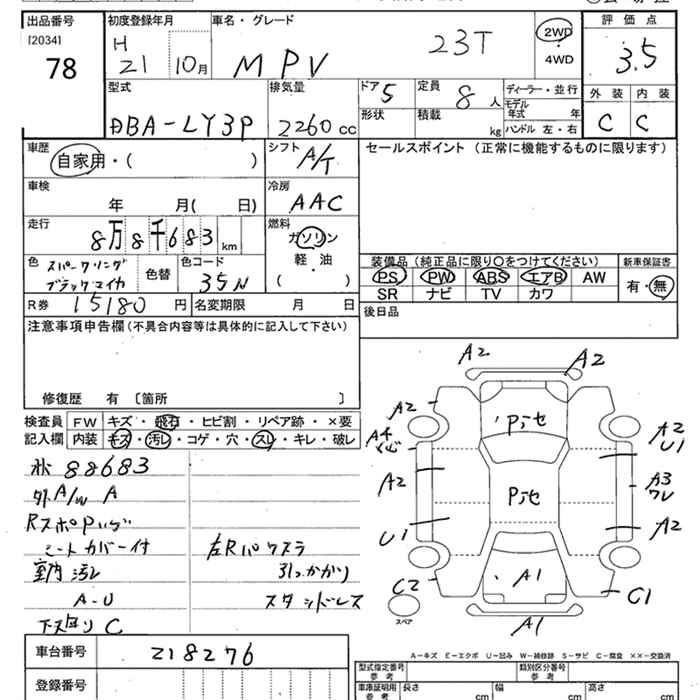 出品番号
[2034]
78
初度登録年月
H
21 10月
車名・グレード
MPV 23T
2WD
4WD
評価点
3.5
外装 内装
C C
型式
DBA-LY3P
排気量
2260 cc
ドア 5
形状
定員 8 人
積載 kg
ディーラー・並行
モデル年式 年
ハンドル 左・右
車歴
自家用・( )
シフト A/T
セールスポイント (正常に機能するものに限ります)
車検
年 月( 日)
冷房
AAC
走行
8万8千683 km
燃料
ガソリン
軽・油
( )
色 スパークリング
ブラックマイカ
色替
色コード
35N
装備品(純正品に限り○をつけてください)
PS PW ABS エアB AW
SR ナビ TV カワ
新車保証書
有・無
R券 15180 円
名変期限 月 日
後日品
注意事項申告欄(不具合内容等は具体的に記入して下さい)
修復歴 有 〔箇所 〕
検査員
記入欄
FW キズ・飛石・ヒビ割・リペア跡・×要
内装 キズ・汚レ・コゲ・穴・スレ・キレ・破レ
88683
外A/W A
シートカバー付
室内汚レ
A-U
下廻リ C
引っかかり
スタッドレス
A2 A2
A2
A4
A2
U1
C2
A2
U1
A3
ワレ
A2
C1
A1
A1
スペア
A-キズ E-エクボ U-凹み W-補修跡 S-サビ C-腐食 ××-交換済
車台番号 218276
登録番号
型式指定番号
参考
類別区分番号
参考
車庫証明用
参考
長さ cm
幅 cm
高さ cm